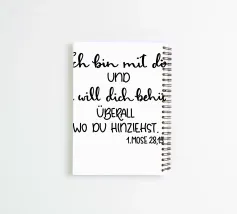 ch bin mit di
UND
will dich behü
ÜBERALL
WO DU HINZIEHST.
1.MOSE 28,15